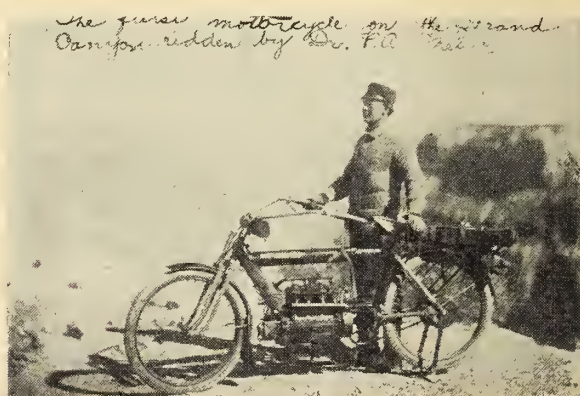 The first motorcycle on the Grand
Canyon ridden by Dr. F.A.